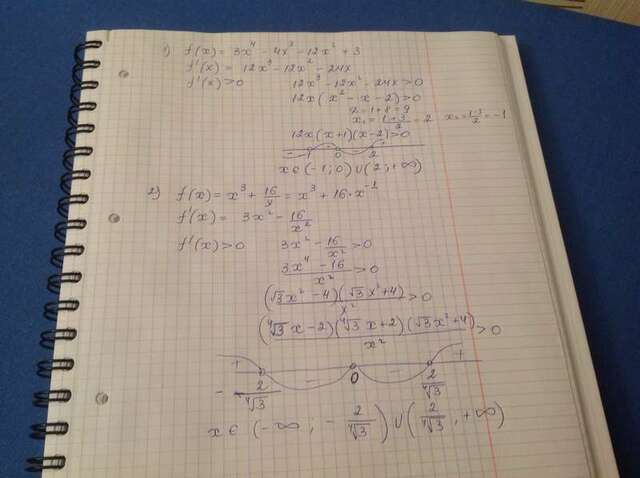 1) f(x) = 3x⁴ - 4x³ - 12x² + 3
f'(x) = 12x³ - 12x² - 24x
f'(x) > 0 12x³ - 12x² - 24x > 0
12x(x² - x - 2) > 0
D = 1 + 8 = 9
x₁ = (1+3)/2 = 2 x₂ = (1-3)/2 = -1
12x(x+1)(x-2) > 0
- -1 0 2
x ∈ (-1; 0) ∪ (2; +∞)
2) f(x) = x³ + 16/x = x³ + 16·x⁻¹
f'(x) = 3x² - 16/x²
f'(x) > 0 3x² - 16/x² > 0
(3x⁴ - 16)/x² > 0
(√3x² - 4)(√3x² + 4)/x² > 0
(⁴√3x - 2)(⁴√3x + 2)(√3x² + 4)/x² > 0
+ - - +
-2/⁴√3 0 2/⁴√3
x ∈ (-∞; -2/⁴√3) ∪ (2/⁴√3; +∞)